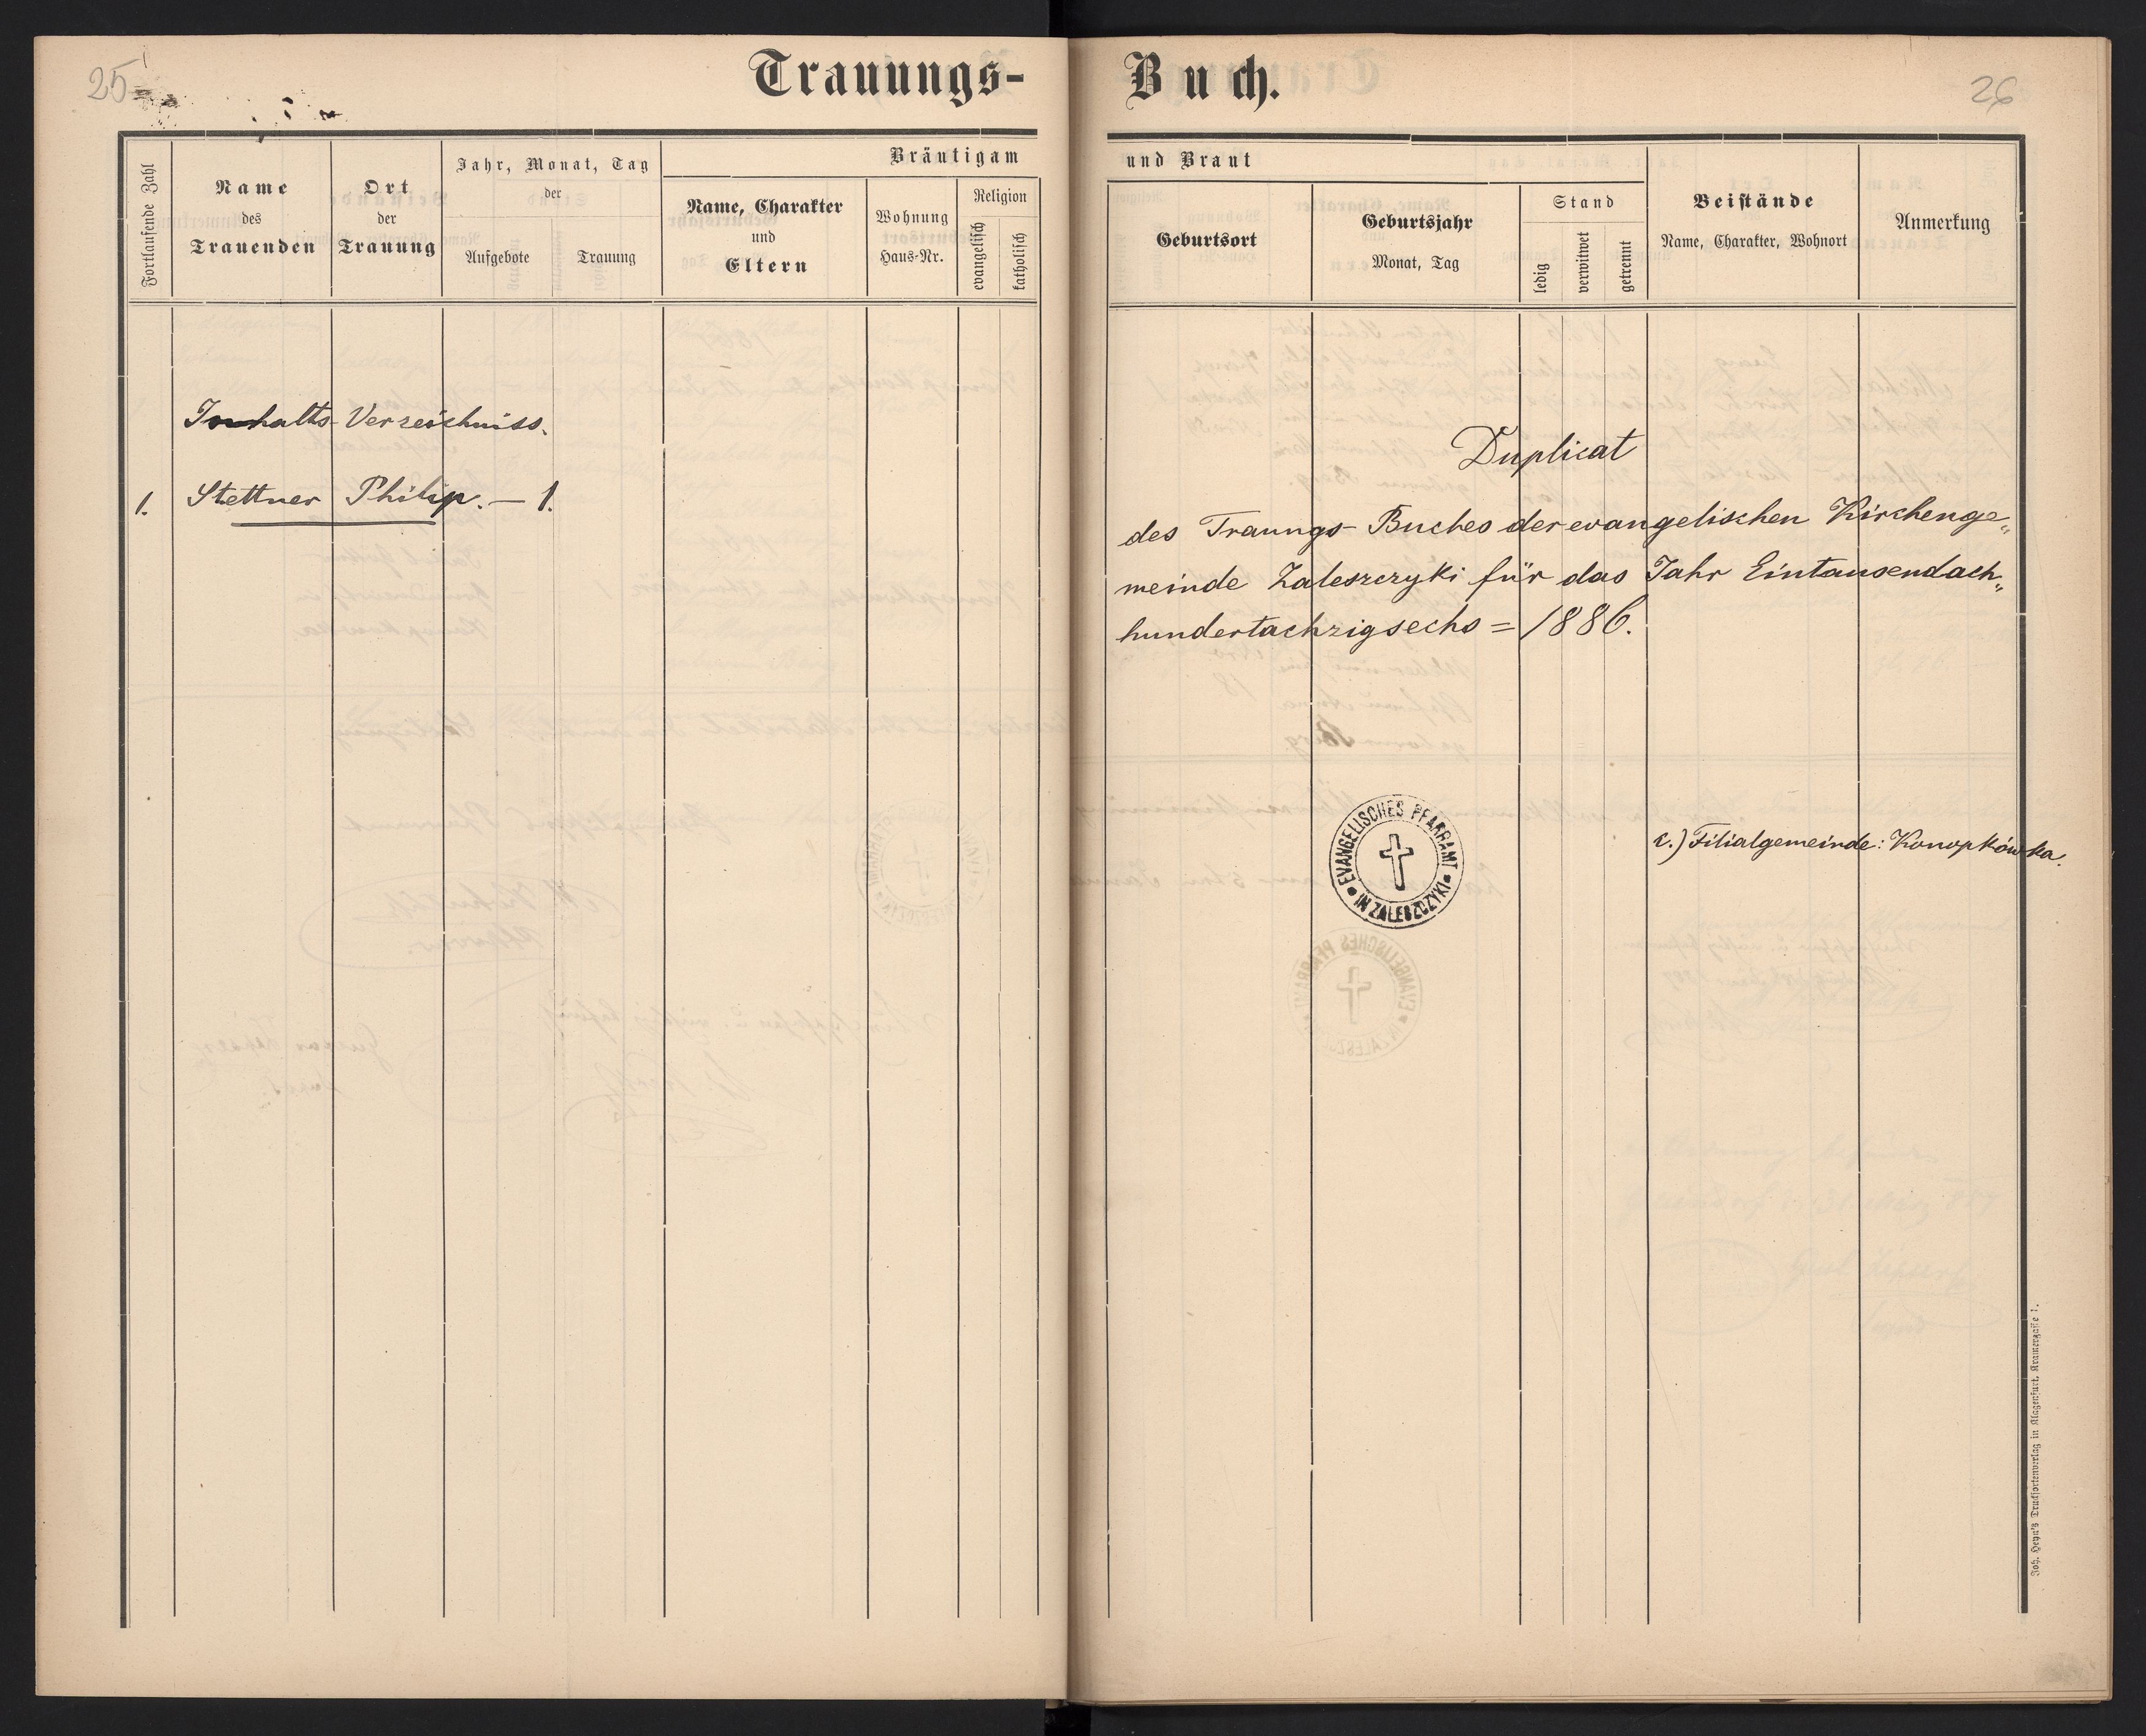 25
Trauungs-
Fortlaufende Zahl
Name
des
Trauenden
Ort
der
Trauung
Jahr, Monat, Tag
der
Aufgebote
Trauung
Bräutigam
Name, Charakter
und
Eltern
Wohnung
Haus-Nr.
Religion
evangelisch
katholisch
Inhalts-Verzeichniss.
1. Stettner Philip. — 1.
Buch.
26
und Braut
Geburtsort
Geburtsjahr
Monat, Tag
Stand
ledig
verwitwet
getrennt
Beistände
Name, Charakter, Wohnort
Anmerkung
Duplicat
des Traungs-Buches der evangelischen Kirchenge„
meinde Zaleszczyki für das Jahr Eintausendach„
hundertachzigsechs = 1886.
EVANGELISCHES PFARRAMT
IN ZALESZCZYKI
c.) Filialgemeinde: Konopkówka.
Joh. Heyn's Drucksortenverlag in Klagenfurt, Kramergasse 1.